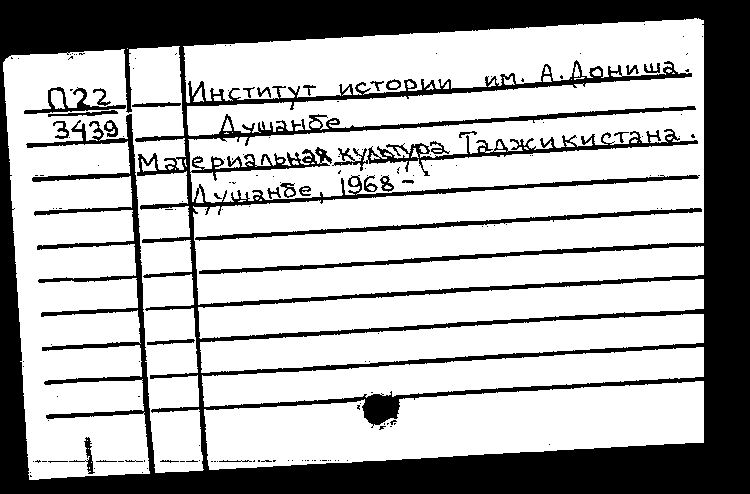 П22 Институт истории им. А. Дониша.
3439 Душанбе.
Материальная культура Таджикистана.
Душанбе, 1968 –